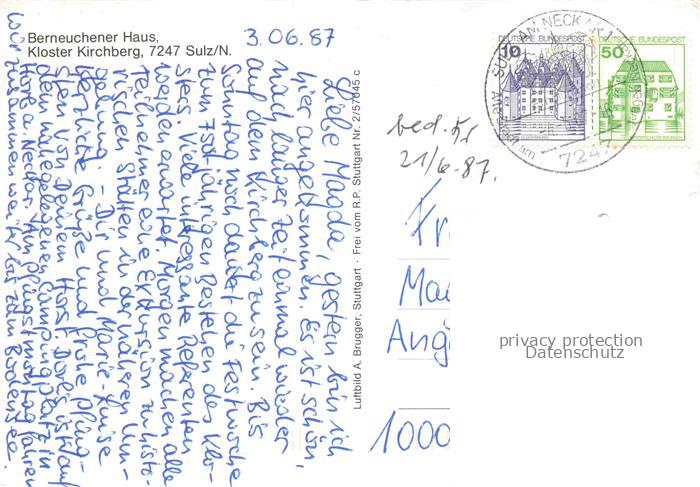 Berneuchener Haus,
Kloster Kirchberg, 7247 Sulz/N.
3.06.87
Liebe Magda, gestern bin ich
hier angekommen. Es ist schön,
nach langer Zeit einmal wieder
auf dem Kirchberg zu sein. Bis
Sonntag noch dauert die Festwoche
zum 750 jährigen Bestehen des Klo-
sters. Viele interessante Referenten
werden erwartet. Morgen machen alle
Teilnehmer eine Exkursion zu histo-
rischen Stätten in der näheren Um-
gebung. - Dir und Marie-Luise
herzliche Grüße und frohe Pfing-
sten von Deinem Horst. Doris ist auf
dem nahegelegenen Campingplatz in
Horb a. Neckar. Am Pfingstmontag fahren
wir zusammen weiter bis zum Bodensee.
Luftbild A. Brugger, Stuttgart · Frei vom R.P. Stuttgart Nr. 2/57045 c
10 DEUTSCHE BUNDESPOST
50 DEUTSCHE BUNDESPOST
SULZ AM NECKAR 1
724
21/6.87.
Fr
Ma
Ang
1000
privacy protection
Datenschutz